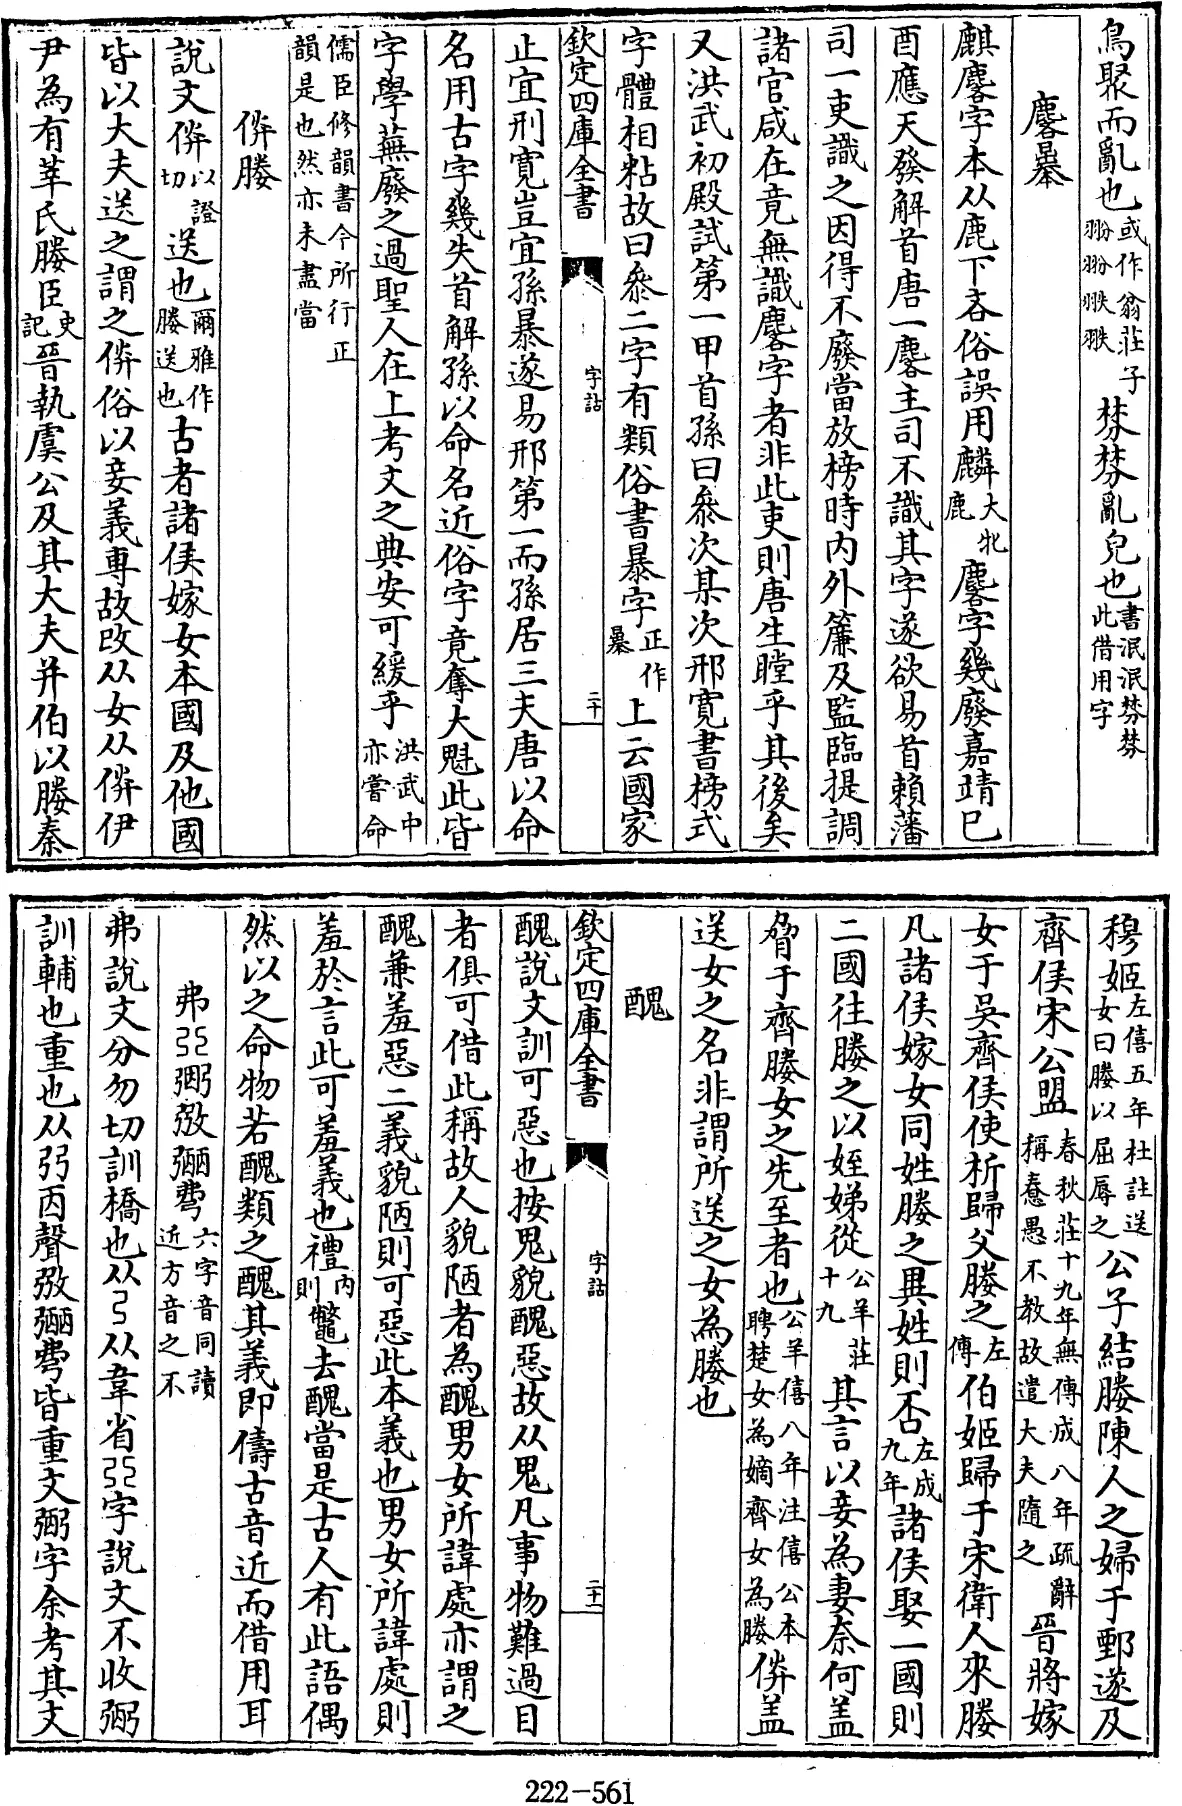 鳥聚而亂也或作翁莊子翂翂翐翐棼棼亂皃也書泯泯棼棼此借用字
麔暴
麒麔字本从鹿下咎俗誤用麟大牝鹿麔字幾廢嘉靖己
酉應天發解首唐一麔主司不識其字遂欲易首賴藩
司一吏識之因得不廢當放榜時内外簾及監臨提調
諸官咸在竟無識麔字者非此吏則唐生瞠乎其後矣
又洪武初殿試第一甲首孫曰㳟次某次邢寛書榜式
字體相粘故曰㳟二字有類俗書暴字正作㬥上云國家
欽定四庫全書
字詁
二十
止宜刑寛豈宜孫暴遂易邢第一而孫居三夫唐以命
名用古字幾失首解孫以命名近俗字竟奪大魁此皆
字學蕪廢之過聖人在上考文之典安可緩乎洪武中亦嘗命
儒臣修韻書今所行正韻是也然亦未盡當
㑞媵
說文㑞以證切送也爾雅作媵送也古者諸侯嫁女本國及他國
皆以大夫送之謂之㑞俗以妾義專故改从女从㑞伊
尹為有莘氏媵臣史記晉執虞公及其大夫井伯以媵秦
穆姬左僖五年杜註送女曰媵以屈辱之公子結媵陳人之婦于鄄遂及
齊侯宋公盟春秋莊十九年無傳成八年疏辭稱蠢愚不教故遣大夫隨之晉將嫁
女于吳齊侯使析歸父媵之左傳伯姬歸于宋衛人來媵
凡諸侯嫁女同姓媵之異姓則否左成九年諸侯娶一國則
二國往媵之以姪娣從公羊莊十九其言以妾為妻奈何盖
脅于齊媵女之先至者也公羊僖八年注僖公本聘楚女為嫡齊女為媵㑞盖
送女之名非謂所送之女為媵也
醜
欽定四庫全書
字詁
二十一
醜說文訓可惡也按鬼貌醜惡故从鬼凡事物難過目
者俱可借此稱故人貌陋者為醜男女所諱處亦謂之
醜兼羞惡二義貌陋則可惡此本義也男女所諱處則
羞於言此可羞義也禮内則鼈去醜當是古人有此語偶
然以之命物若醜類之醜其義即儔古音近而借用耳
弗弜弼㢸彌㢱六字音同讀近方音之不
弗說文分勿切訓橋也从弓从韋省弜字說文不收弼
訓輔也重也从弜㐁聲㢸彌㢱皆重文弼字余考其文
222-561